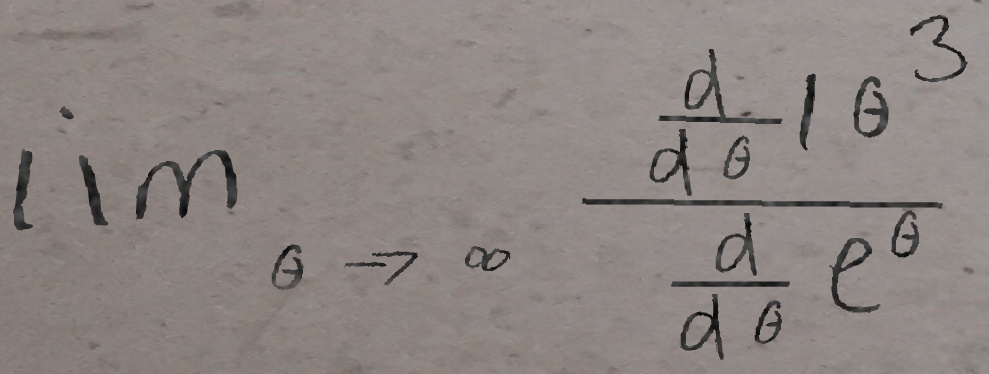 \lim_{\theta \to \infty} \frac{\frac{d}{d\theta} 1 \theta^3}{\frac{d}{d\theta} e^\theta}